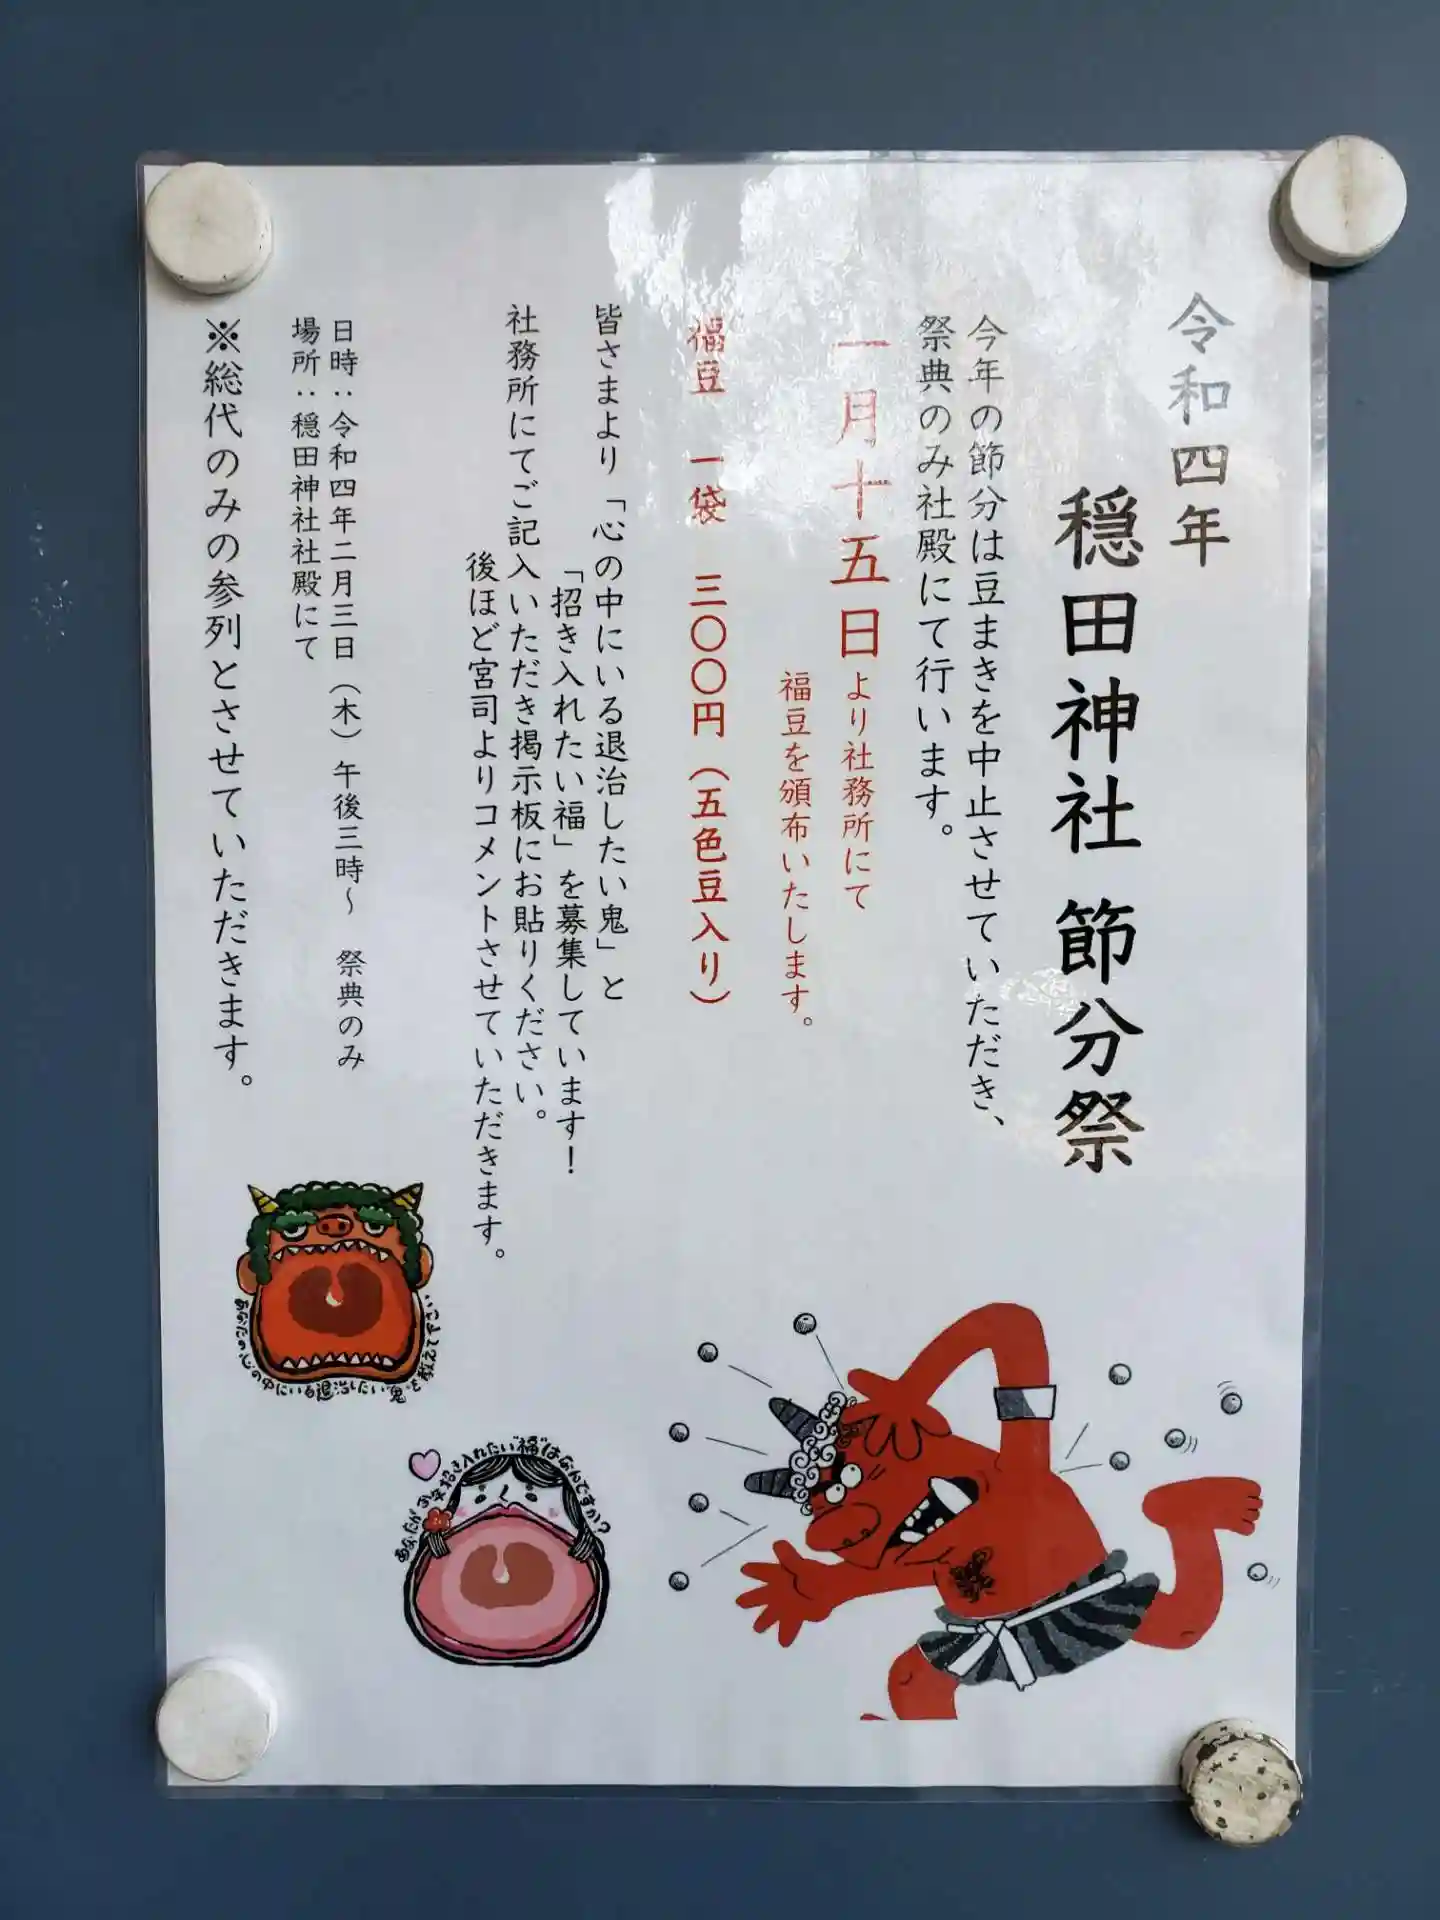 令和四年
穏田神社 節分祭
今年の節分は豆まきを中止させていただき、
祭典のみ社殿にて行います。
一月十五日より社務所にて
福豆を頒布いたします。
福豆 一袋 三〇〇円（五色豆入り）
皆さまより「心の中にいる退治したい鬼」と
「招き入れたい福」を募集しています！
社務所にてご記入いただき掲示板にお貼りください。
後ほど宮司よりコメントさせていただきます。
日時：令和四年二月三日（木）午後三時～ 祭典のみ
場所：穏田神社社殿にて
※総代のみの参列とさせていただきます。
あなたの心の中にいる退治したい"鬼"を教えて下さい
あなたがお年招き入れたい"福"はなんですか？